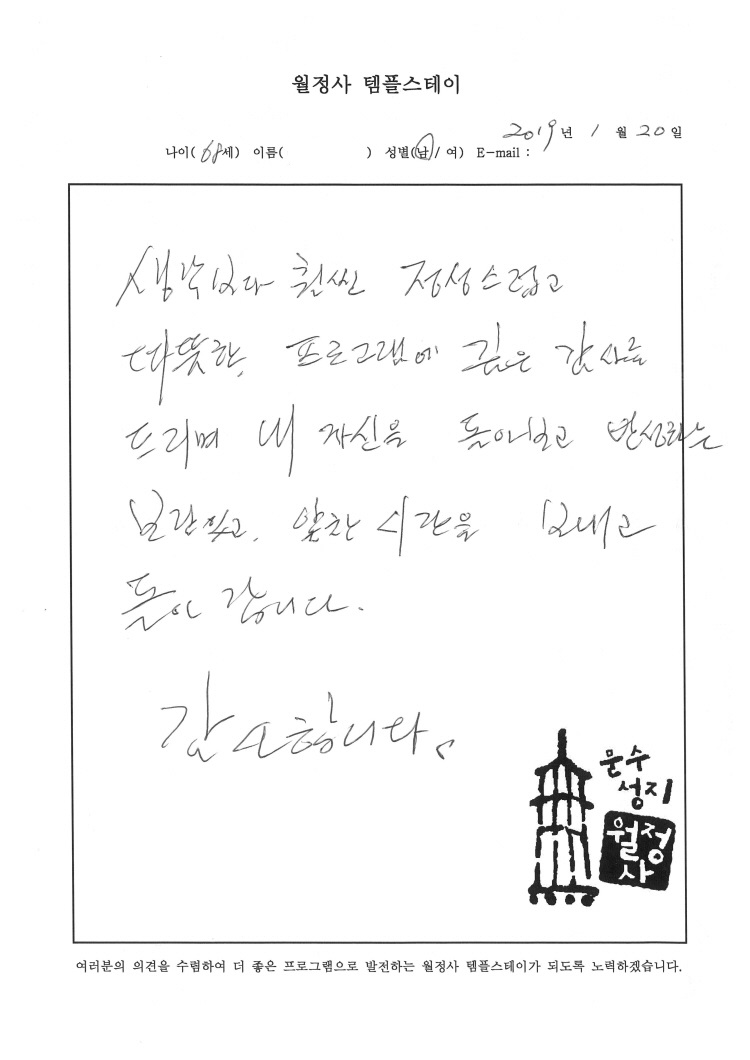 월정사 템플스테이
2019년 1월 20일
나이( 68세) 이름( ) 성별(남/ 여) E-mail :
생각보다 훨씬 정성스럽고
따뜻한, 프로그램에 깊은 감사를
드리며 내 자신을 돌아보고 반성하는
보람있고, 알찬 시간을 보내고
돌아 갑니다.
감사합니다.
문수
성지
월정
사
여러분의 의견을 수렴하여 더 좋은 프로그램으로 발전하는 월정사 템플스테이가 되도록 노력하겠습니다.